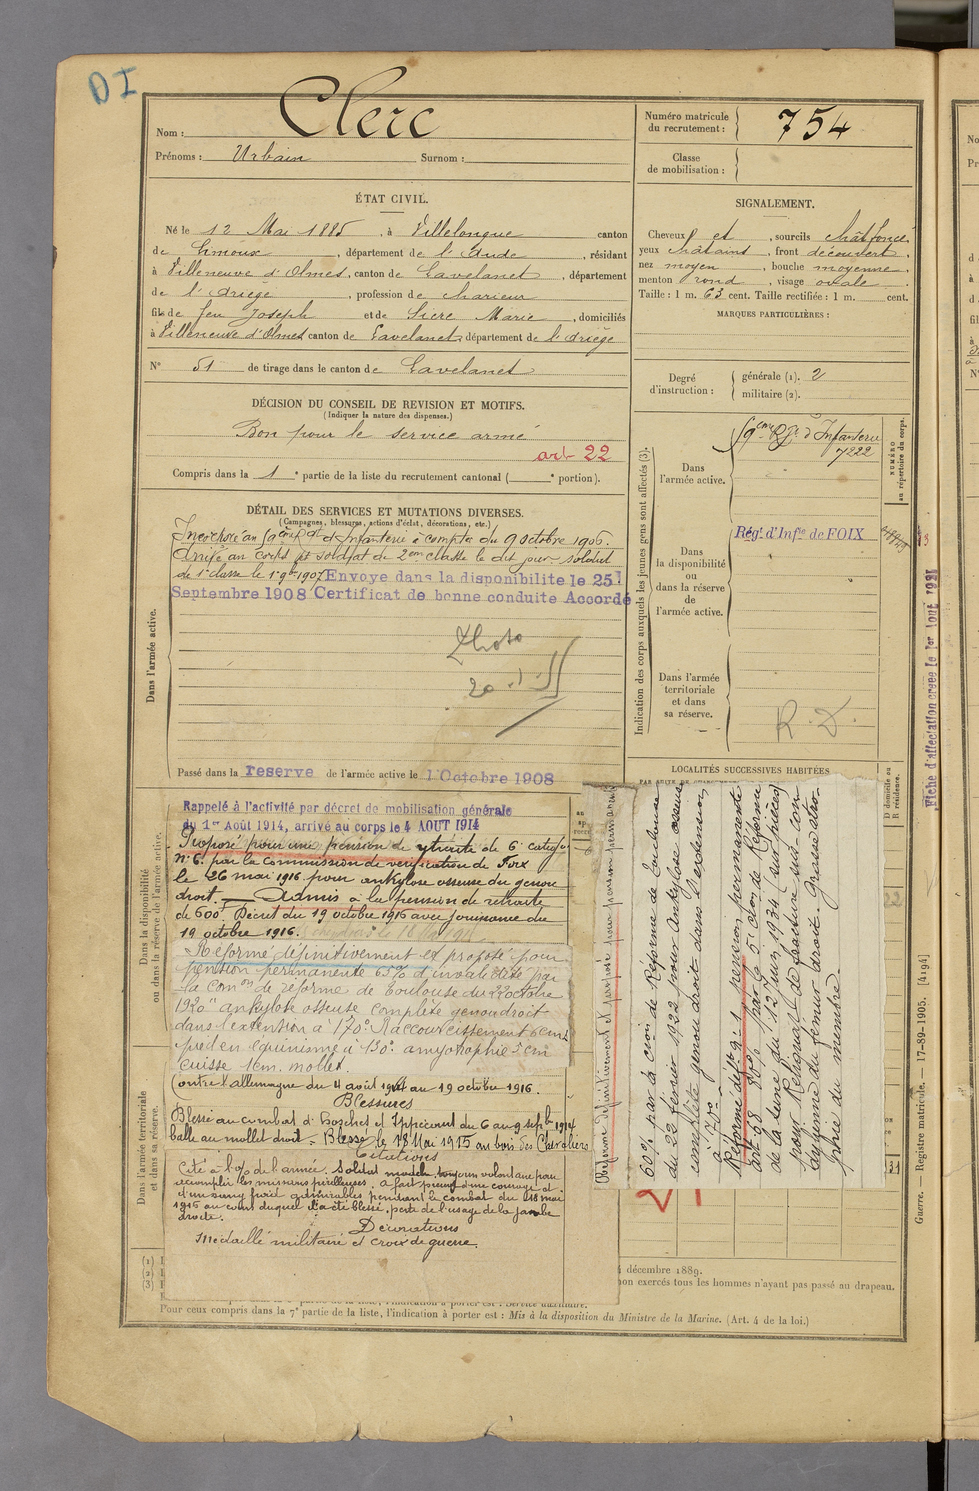 DI
Nom : Clerc
Prénoms : Urbain Surnom :
Numéro matricule du recrutement : 754
Classe de mobilisation :
ÉTAT CIVIL.
Né le 12 Mai 1885, à Villelongue canton
de Limoux, département de l'Aude, résidant
à Villeneuve d'Olmes, canton de Lavelanet, département
de l'Ariège, profession de
fils de feu Joseph et de Sicre Marie, domiciliés
à Villeneuve d'Olmes canton de Lavelanet département de l'Ariège
N° 51 de tirage dans le canton de Lavelanet
SIGNALEMENT.
Cheveux et , sourcils chât foncé
yeux châtains, front découvert,
nez moyen, bouche moyenne,
menton rond, visage ovale.
Taille : 1 m. 63 cent. Taille rectifiée : 1 m. cent.
MARQUES PARTICULIÈRES :
Degré d'instruction : générale (1). 2
militaire (2).
DÉCISION DU CONSEIL DE REVISION ET MOTIFS.
(Indiquer la nature des dispenses.)
Bon pour le service armé
art 22
Compris dans la 1e partie de la liste du recrutement cantonal ( e portion).
DÉTAIL DES SERVICES ET MUTATIONS DIVERSES.
(Campagnes, blessures, actions d'éclat, décorations, etc.)
Incorporé au d'Infanterie à compter du 9 octobre 1906.
Arrivé au corps soldat de 2eme classe le dit jour soldat
de 1e classe le 1907 Envoye dans la disponibilite le 25
Septembre 1908 Certificat de bonne conduite Accordé
Dans l'armée active.
Passé dans la reserve de l'armée active le 1 Octobre 1908
Indication des corps auxquels les jeunes gens sont affectés (3).
Dans l'armée active.
Rgt d'Infanterie
7222
NUMÉRO au répertoire du corps.
Dans la disponibilité ou dans la réserve de l'armée active.
Régt d'Infie de FOIX
Dans l'armée territoriale et dans sa réserve.
R.D.
LOCALITÉS SUCCESSIVES HABITÉES
D domicile ou R résidence.
Fiche d'affectation créée le 1er Aout 1921
Dans la disponibilité ou dans la réserve de l'armée active.
Rappelé à l'activité par décret de mobilisation générale
du 1er Août 1914, arrivé au corps le 4 AOUT 1914
Proposé pour une pension de retraite de 6e catégie
N° 6 par la Commission de vérification de Foix
le 26 mai 1916 pour ankylose osseuse du genou
droit. Admis à la pension de retraite
de 600f Décret du 19 octobre 1916 avec jouissance du
19 octobre 1916.
"Réformé définitivement et proposé pour
pension permanente 65% d'invalidité par
la Comon de réforme de Toulouse du 22 octobre
1920" ankylose osseuse complète genou droit
dans l'extention à 170° Raccourcissement
pied en équinisme à 130° amyotrophie 5 cm
cuisse 1cm. mollet.
Dans l'armée territoriale et dans sa réserve.
Contre l'allemagne du 4 août 1914 au 19 octobre 1916.
Blessures
Blessé au combat d' et Ippécourt du 6 au 9 sept 1914
balle au mollet droit. Blessé le 18 Mai 1915 au bois des Chevaliers
Citations
Cité à l'O/ de l'armée. Soldat modèle toujours volontaire pour
accomplir les missions périlleuses. A fait preuve d'un courage et
d'un sang froid admirables pendant le combat du 18 mai
1915 au cours duquel il a été blessé. perte de l'usage de la jambe
droite.
Décorations
Médaille militaire et croix de guerre.
Réformé définitivement et proposé pour pension permanente
60% par la cion de réforme de Toulouse
du 22 février 1922 pour ankylose osseuse
complète genou droit dans l'extension
à 170°
Réformé déftf n° 1, pension permanente
art 98 80% par la 5e cion de Réforme
de la Seine du 12 juin 1934 (sur pièces)
pour Reliquat de fracture sus-con-
dylienne du fémur droit. Grosse atro-
phie du membre.
4 décembre 1889.
non exercés tous les hommes n'ayant pas passé au drapeau.
Pour ceux compris dans la 7e partie de la liste, l'indication à porter est : Mis à la disposition du Ministre de la Marine. (Art. 4 de la loi.)
Guerre. — Registre matricule. — 17-89-1905. [4194]